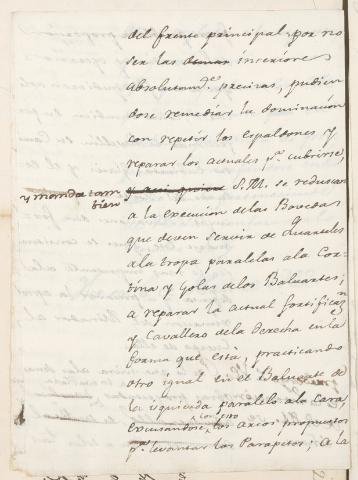 del frente principal, por no
ser las demas inferiores
absolutamte. precisas, pudien
dose remediar la dominacion
con repetir los espaldones y
reparar los actuales pa. cubrirse,
y manda tam
bien
y assi quiere S.M. se reduscan
a la execucion de las Bovedas
que deven servir de Quarteles
a la tropa paralelas a la Cor-
tina y Golas de los Baluartes;
a reparar la actual fortificaon
y Cavallero de la derecha en la
forma que está, practicando
otro igual en el Baluarte de
la izquierda paralelo a la cara,
con esto
excusandose los
propuestos
pa. levantar los Parapetos; a la